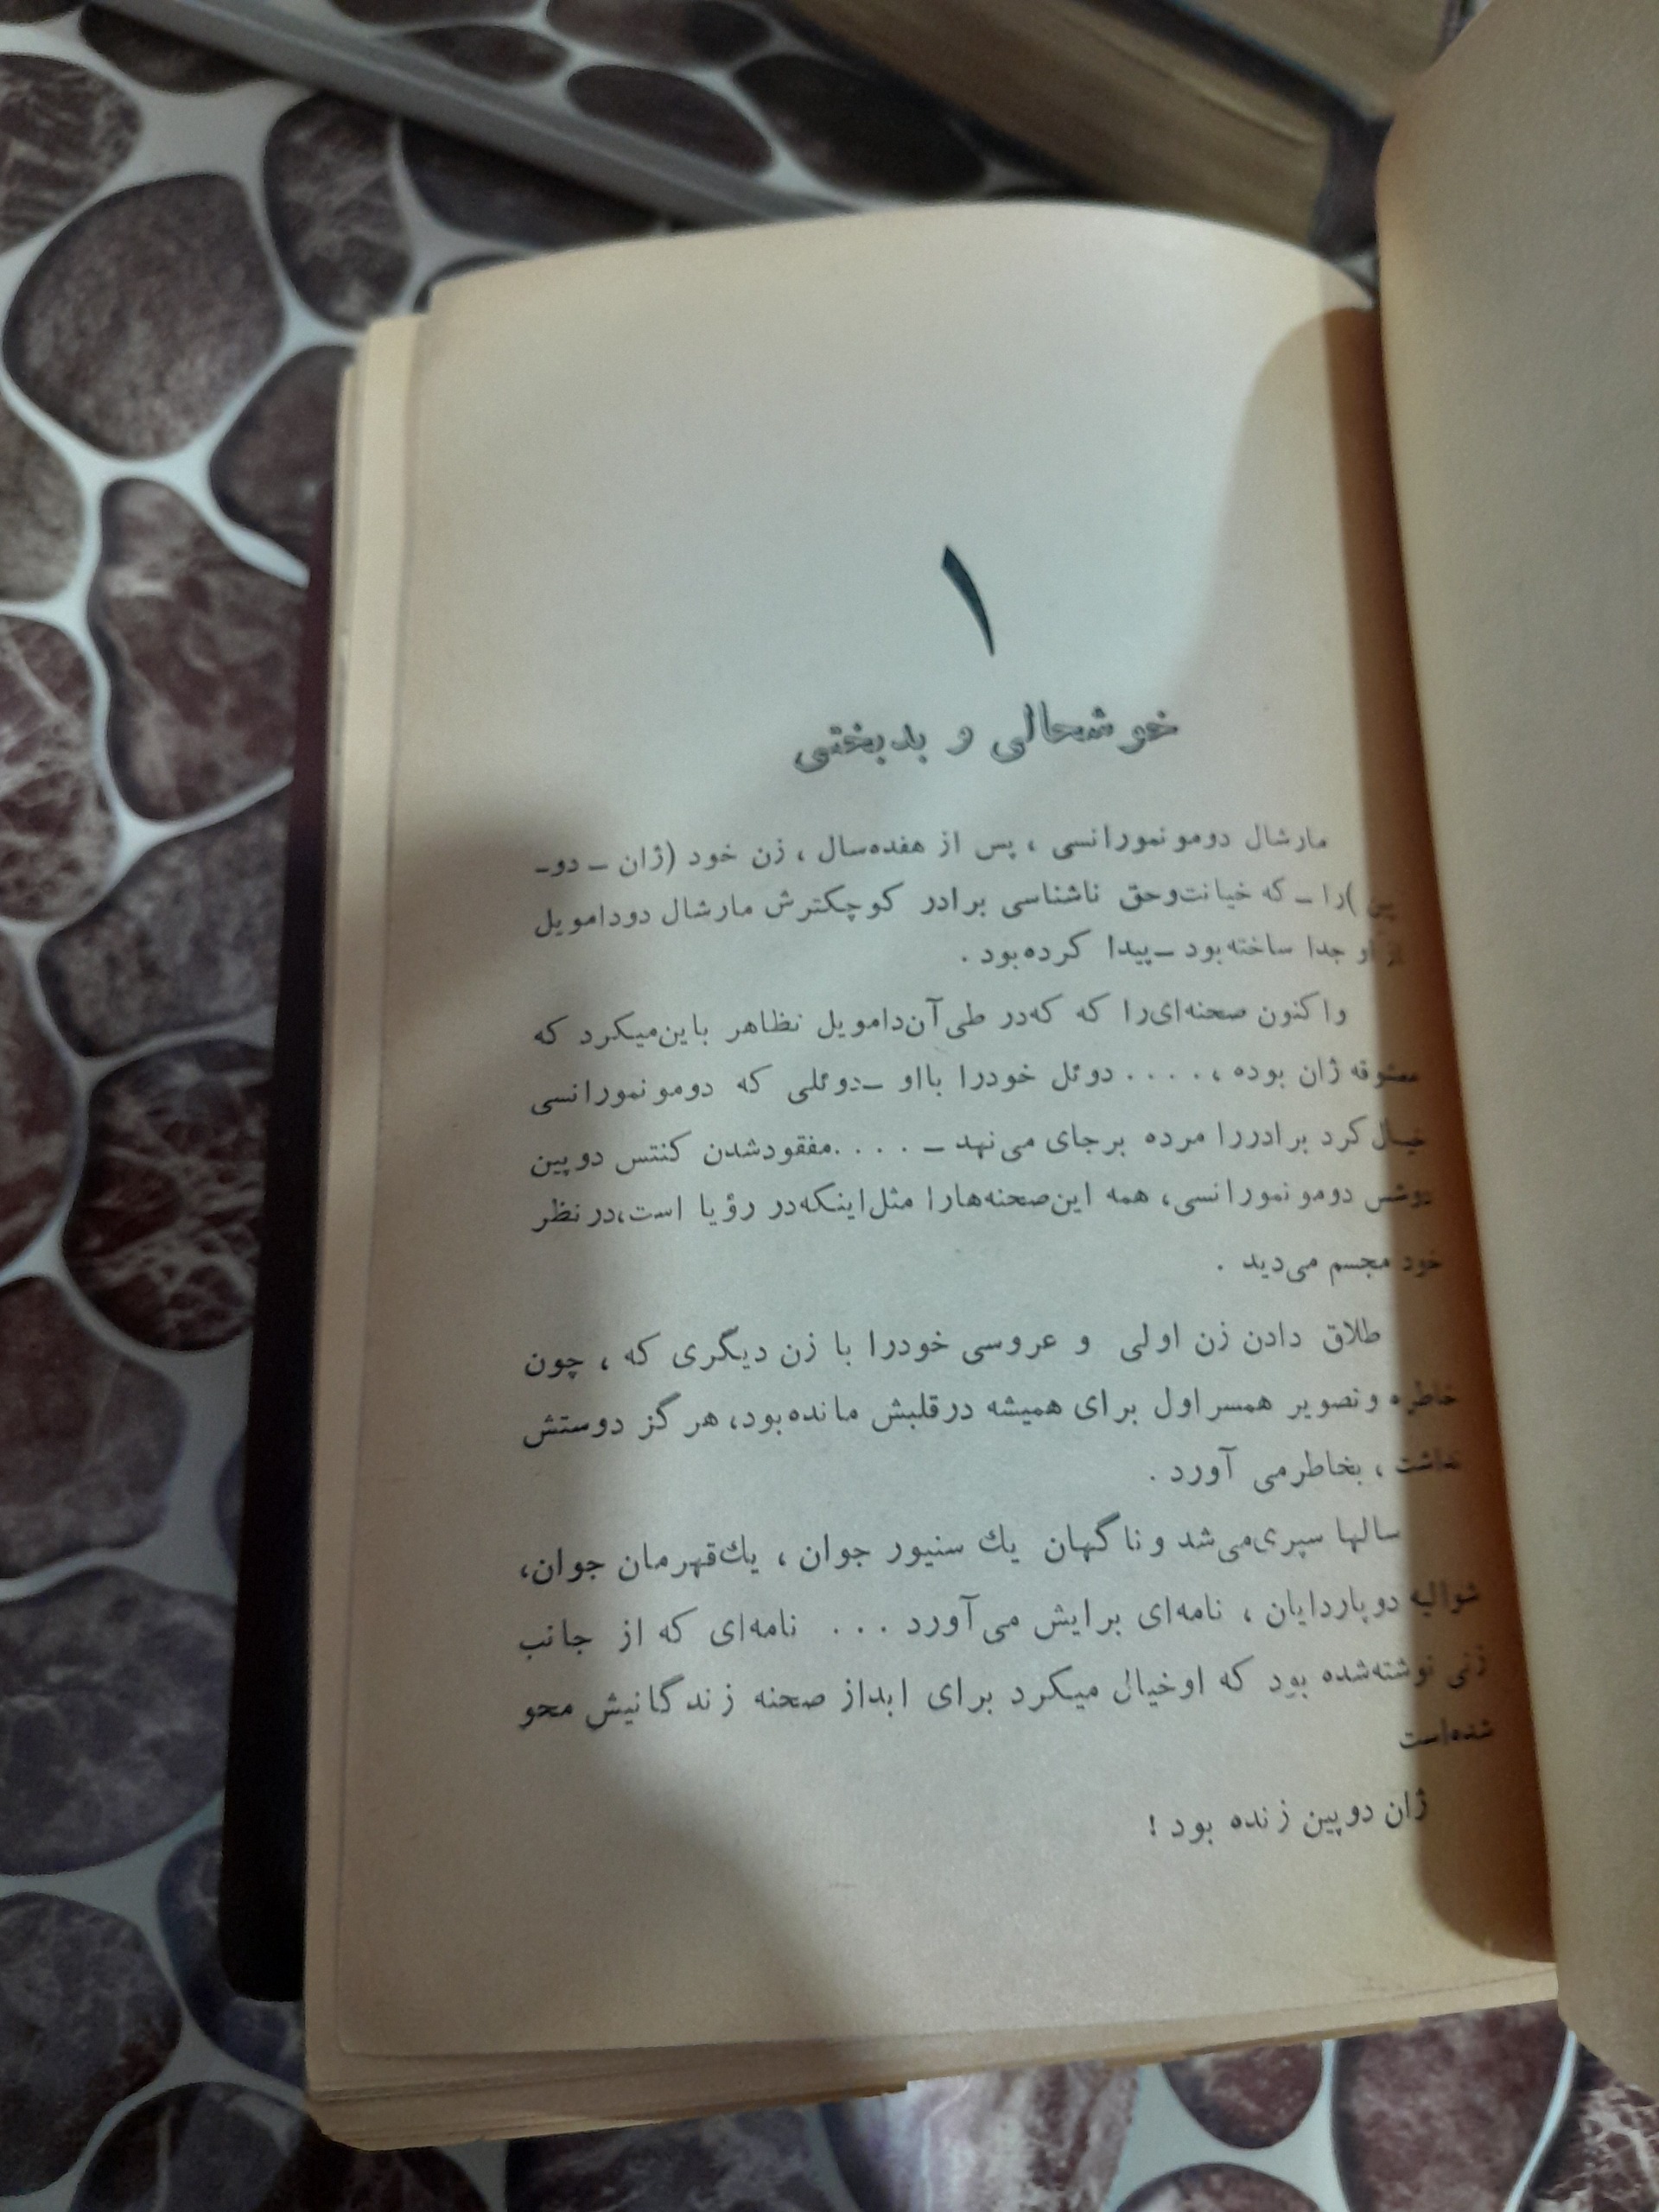 ۱
خوشحالی و بدبختی
مارشال دومونمورانسی ، پس از هفده‌سال ، زن خود (ژان ـ دو‌ـ
پین )را ـ که خیانت‌وحق ناشناسی برادر کوچکترش مارشال دودامویل
از او جدا ساخته‌بود ـ پیدا کرده‌بود .
واکنون صحنه‌ای‌را که که‌در طی‌آن‌دامویل تظاهر باین‌میکرد که
معشوقه ژان بوده ، . . . . دوئل خودرا بااو ـ دوئلی که دومونمورانسی
خیال کرد برادررا مرده برجای می‌نهد ـ . . . . مفقودشدن کنتس دوپین
دوشس دومونمورانسی، همه این‌صحنه‌هارا مثل‌اینکه‌در رؤیا است،درنظر
خود مجسم می‌دید .
طلاق دادن زن اولی و عروسی خودرا با زن دیگری که ، چون
خاطره وتصویر همسراول برای همیشه درقلبش مانده‌بود، هرگز دوستش
نداشت ، بخاطرمی آورد .
سالها سپری‌می‌شد وناگهان یك سنیور جوان ، یك‌قهرمان جوان،
شوالیه دوپاردایان ، نامه‌ای برایش می‌آورد . . . نامه‌ای که از جانب
زنی نوشته‌شده بود که اوخیال میکرد برای ابداز صحنه زندگانیش محو
شده‌است
ژان دوپین زنده بود !